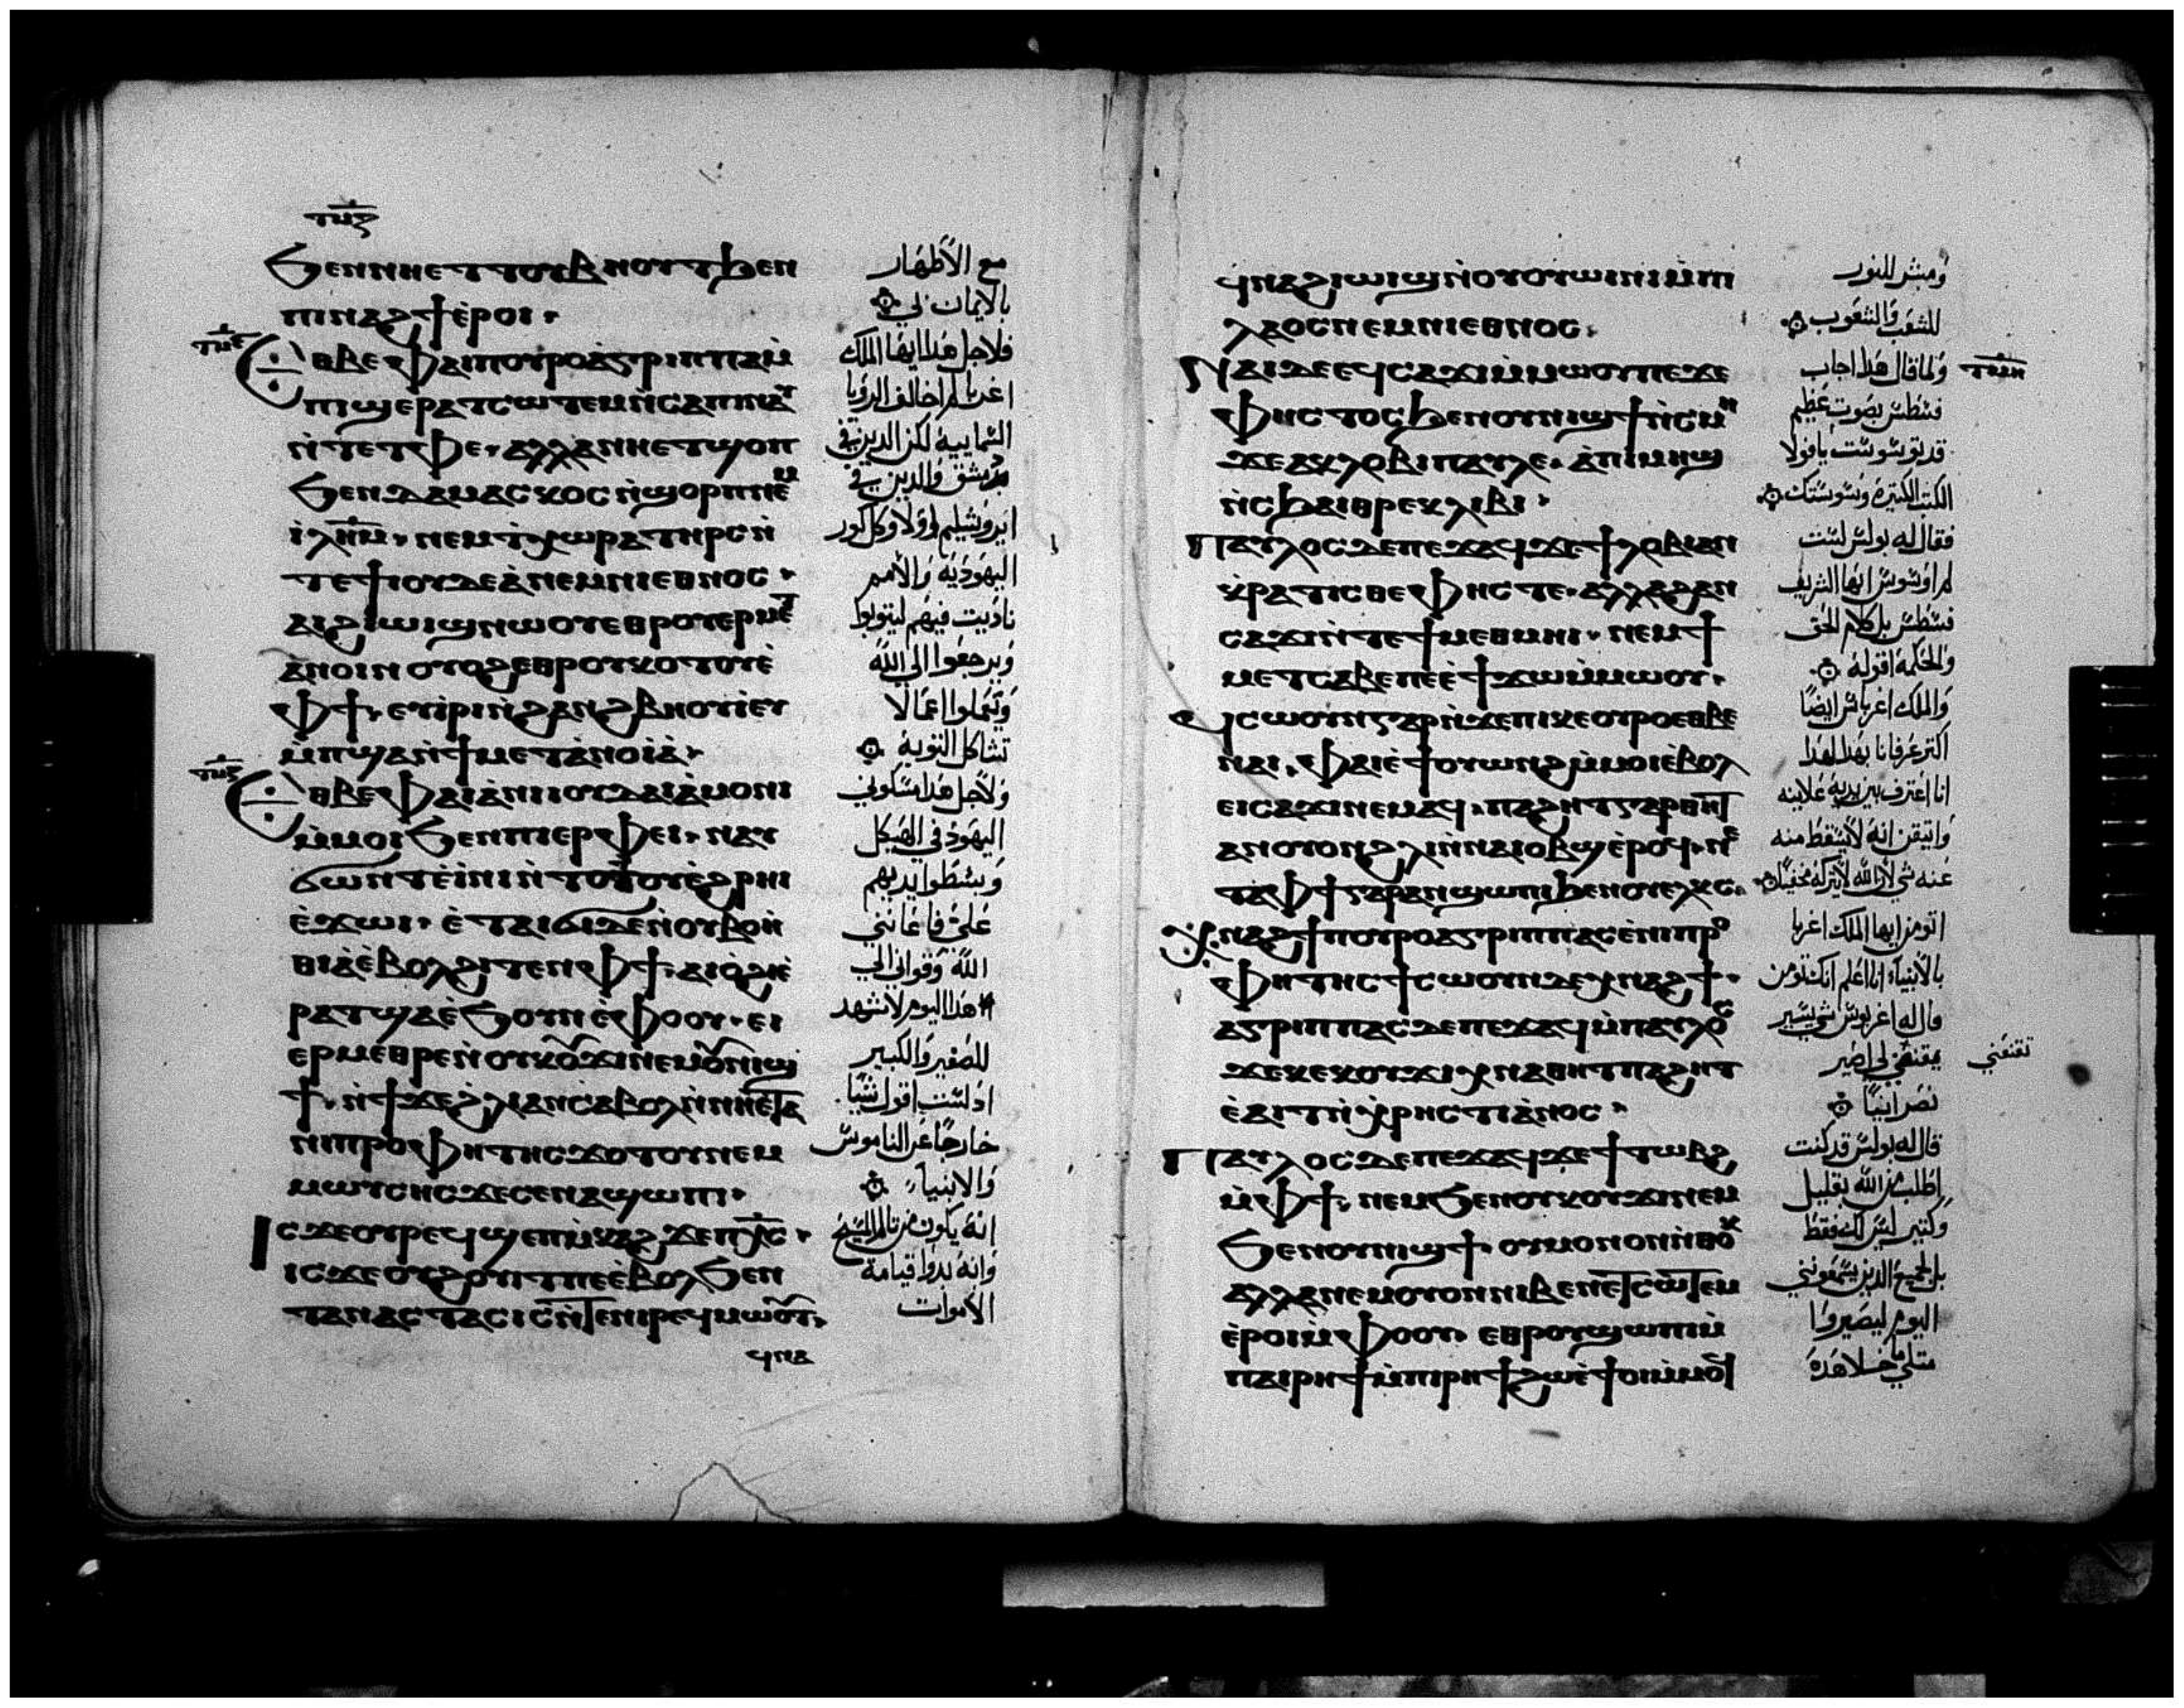 ϧⲉⲛⲛⲏⲉⲧⲧⲟⲩⲃⲏⲟⲩⲧϧⲉⲛ
ⲡⲓⲛⲁϩϯⲉ̀ⲣⲟⲓ.
ⲉⲑⲃⲉⲫⲁⲓⲡⲟⲩⲣⲟⲁ̀ⲅⲣⲓⲡⲡⲁⲙ̀
ⲡⲓϣⲉⲣⲁⲧⲥⲱⲧⲉⲙⲛ̀ⲥⲁⲡⲓⲛⲁⲩ
ⲛ̀ⲧⲉⲧⲫⲉ. ⲁⲗⲗⲁⲛⲏⲉⲧϣⲟⲡ
ϧⲉⲛⲇⲁⲙⲁⲥⲕⲟⲥⲛ̀ϣⲟⲣⲡⲛⲉⲙ
ⲓ̀ⲗⲏⲙ. ⲛⲉⲙϯⲭⲱⲣⲁⲧⲏⲣⲥⲛ̀
ⲧⲉϯⲓⲟⲩⲇⲉⲁ̀ⲛⲉⲙⲛⲓⲉⲑⲛⲟⲥ.
ⲁⲓϩⲓⲱⲓϣⲛⲱⲟⲩⲉⲑⲣⲟⲩⲉⲣⲙⲉⲧ
ⲁⲛⲟⲓⲛⲟⲩⲟϩⲉⲑⲣⲟⲩⲕⲟⲧⲟⲩⲉ̀
ⲫϯ. ⲉⲩⲓ̀ⲣⲓⲛ̀ϩⲁⲛϩⲃⲏⲟⲩⲓ̀ⲉⲩ
ⲙ̀ⲡϣⲁⲛ̀ϯⲙⲉⲧⲁ̀ⲛⲟⲓⲁ̀.
ⲉⲑⲃⲉⲫⲁⲓⲁ̀ⲛⲓⲓⲟⲩⲇⲁⲓⲁ̀ⲙⲟⲛⲓ
ⲙ̀ⲙⲟⲓϧⲉⲛⲡⲓⲉⲣⲫⲉⲓ. ⲛⲁⲩ
ϭⲱⲛⲧⲉ̀ⲓ̀ⲛⲓⲛ̀ⲧⲟⲧⲟⲩⲉ̀ϩⲣⲏⲓ
ⲉ̀ϫⲱⲓ. ⲉ̀ⲧⲁⲓϭⲓⲇⲉⲛ̀ⲟⲩⲃⲟⲏ̀
ⲑⲓⲁ̀ⲉ̀ⲃⲟⲗϩⲓⲧⲉⲛⲫϯ. ⲁⲓⲟ̀ϩⲓⲉ̀
ⲣⲁⲧϣⲁⲉ̀ϧⲟⲩⲛⲉ̀ⲫⲟⲟⲩ. ⲉⲓ
ⲉⲣⲙⲉⲑⲣⲉⲛ̀ⲟⲩⲕⲟⲩϫⲓⲛⲉⲙⲟⲩⲛⲓϣ
ϯ. ⲛ̀ϯϫⲉϩⲗⲓⲁⲛⲥⲁⲃⲟⲗⲛ̀ⲛⲏⲉⲧⲁ
ⲛⲓⲡⲣⲟⲫⲏⲧⲏⲥϫⲟⲧⲟⲩⲛⲉⲙ
ⲙⲱⲩⲥⲏⲥϫⲉⲥⲉⲛⲁϣⲱⲡⲓ.
ⲓⲥϫⲉⲟⲩⲣⲉϥϣⲉⲡⲙ̀ⲕⲁϩϫⲉⲡⲭ̅ⲥ̅.
ⲓⲥϫⲉⲟⲩϩⲟⲩⲓⲧⲡⲉⲉ̀ⲃⲟⲗϧⲉⲛ
ⲧⲁⲛⲁⲥⲧⲁⲥⲓⲥⲛ̀ⲧⲉⲛⲓⲣⲉϥⲙⲱⲟⲩⲧ.
ϥⲛⲁ
مع الأطهار
بالايمان لي
فلاجل هذا ايها الملك
اغربا لم اخالف الرؤيا
السمايية لكن الذين في
دمشق والذين في
ايروشليم اولا وكل كور
اليهودية والأمم
ناديت فيهم ليتوبوا
ويرجعوا الى الله
وتعملوا اعمالا
تشاكل التوبة
ولاجل هذا مسكوني
اليهود في الهيكل
وبسطوا يديهم
علي فاعانني
الله وقواني الى
هذا اليوم لأشهد
للصغير والكبير
اذ لست اقول شيا
خارجا عن الناموس
والانبياء
انه يكون من تالم المسيح
وانه بدوا قيامة
الاموات
ϥⲛⲁϩⲓⲱⲓϣⲛ̀ⲟⲩⲟⲩⲱⲓⲛⲓⲙ̀ⲡⲓ
ⲗⲁⲟⲥⲛⲉⲙⲛⲓⲉⲑⲛⲟⲥ.
ⲛⲁⲓⲇⲉⲉϥⲥⲁϫⲓⲙ̀ⲙⲱⲟⲩⲡⲉϫⲉ
ⲫⲏⲥⲧⲟⲥϧⲉⲛⲟⲩⲛⲓϣϯⲛ̀ⲥⲙⲏ
ϫⲉⲁⲕⲗⲟⲃⲓⲡⲁⲩⲗⲉ. ⲁ̀ⲡⲓⲙⲏϣ
ⲛ̀ⲥϧⲁⲓⲑⲣⲉⲕⲗⲓⲃⲓ.
ⲡⲁⲩⲗⲟⲥⲇⲉⲡⲉϫⲁϥϫⲉϯⲗⲟⲃⲓⲁⲛ
ⲕ̀ⲣⲁⲧⲓⲥⲑⲉⲫⲏⲥⲧⲉ. ⲁⲗⲗⲁϩⲁⲛ
ⲥⲁϫⲓⲛ̀ⲧⲉϯⲙⲉⲑⲙⲏⲓ. ⲛⲉⲙϯ
ⲙⲉⲧⲥⲁⲃⲉⲡⲉⲉ̀ϯϫⲱⲙ̀ⲙⲱⲟⲩ.
ϥⲥⲱⲟⲩⲛⲅⲁⲣⲛ̀ϫⲉⲡⲓⲕⲉⲟⲩⲣⲟⲉⲑⲃⲉ
ⲛⲁⲓ. ⲫⲁⲓⲉ̀ϯⲟⲩⲱⲛϩⲙ̀ⲙⲟⲓⲉ̀ⲃⲟⲗ
ⲉⲓⲥⲁϫⲓⲛⲉⲙⲁϥ. ⲡⲁϩⲏⲧⲅⲁⲣⲑⲏⲧ
ⲁⲛⲟⲩⲟⲛϩⲗⲓⲛ̀ⲛⲁⲓⲟⲃϣⲉ̀ⲣⲟϥ. ⲛⲉ
ⲧⲁⲫϯⲅⲁⲣⲁⲛϣⲱⲡⲓϧⲉⲛⲟⲩⲉⲗϫⲥ.
ⲭⲛⲁϩϯⲡⲟⲩⲣⲟⲁⲅⲣⲓⲡⲡⲁⲥⲉ̀ⲛⲓⲡⲣⲟ
ⲫⲏⲧⲏⲥϯⲥⲱⲟⲩⲛϫⲉⲭⲛⲁϩϯ.
ⲁⲅⲣⲓⲡⲡⲁⲥⲇⲉⲡⲉϫⲁϥⲙ̀ⲡⲁⲩⲗⲟⲥ
ϫⲉⲕⲉⲕⲟⲩϫⲓⲭⲛⲁⲑⲏⲧⲡⲁϩⲏⲧ
ⲉ̀ⲁⲓⲧⲛ̀ⲭ̀ⲣⲏⲥⲧⲓⲁ̀ⲛⲟⲥ.
ⲡⲁⲩⲗⲟⲥⲇⲉⲡⲉϫⲁϥϫⲉϯⲧⲱⲃϩ
ⲙ̀ⲫϯ. ⲛⲉⲙϧⲉⲛⲟⲩⲕⲟⲩϫⲓⲛⲉⲙ
ϧⲉⲛⲟⲩⲛⲓϣϯ. ⲟⲩⲙⲟⲛⲟⲛⲛ̀ⲑⲟⲕ
ⲁⲗⲗⲁⲛⲉⲙⲟⲩⲟⲛⲛⲓⲃⲉⲛⲉⲧⲥⲱⲧⲉⲙ
ⲉ̀ⲣⲟⲓⲙ̀ⲫⲟⲟⲩ. ⲉⲑⲣⲟⲩϣⲱⲡⲓⲙ̀
ⲡⲁⲓⲣⲏϯⲙ̀ⲡⲓⲣⲏϯϩⲱⲉ̀ϯⲟⲓⲙ̀ⲙⲟϥ
ومبشر للنور
للشعب والشعوب
ولما قال هذا اجاب
فسطس بصوت عظيم
قد توسوست يا فولا
الكتب الكثيرة وسوستك
فقال له بولس لست
لم اوسوس ايها الشريف
فسطس بل كلام الحق
والحكمة اقوله
والملك اغرباس ايضا
اكثر عرفانا بهذا لهذا
انا اعترف بين يديه علانيه
واتيقن انه لا يسقط منه
اتومن ايها الملك اغربا
بالأنبياء انا اعلم انك تومن
قال له اغربوس شي يسير
يقنعني لي اصير
تقنعني
نصرانيا
قال له بولس قد كنت
اطلب من الله بقليل
وكثير ليس لك فقط
بل لجميع الذين يسمعونني
اليوم ليصيروا
مثلي ما خلا هذه